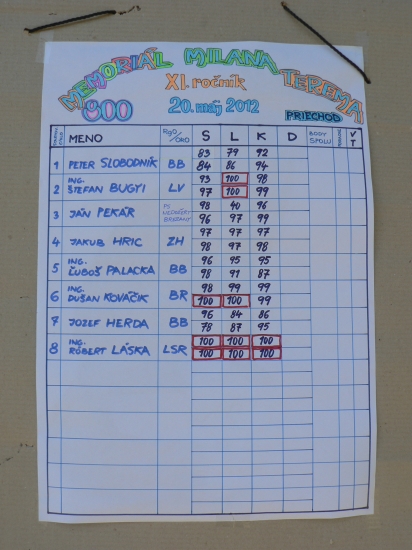 MEMORIÁL MILANA TEREMA
XI. ročník
900 20. máj 2012 PRIECHOD
MENO RgO/ORD S L K D BODY SPOLU V T
83 79 92
1 PETER SLOBODNÍK BB 84 86 94
ING. 93 100 98
2 ŠTEFAN BUGYI LV 97 100 99
98 40 96
3 JÁN PEKÁR 96 97 99
97 97 97
4 JAKUB HRIC ZH 98 97 98
ING. 96 95 95
5 ĽUBOŠ PALACKA BB 98 91 87
ING. 98 99 99
6 DUŠAN KOVÁČIK BR 100 100 99
96 84 86
7 JOZEF HERDA BB 78 87 95
ING. 100 100 100
8 RÓBERT LÁSKA LSR 100 100 100